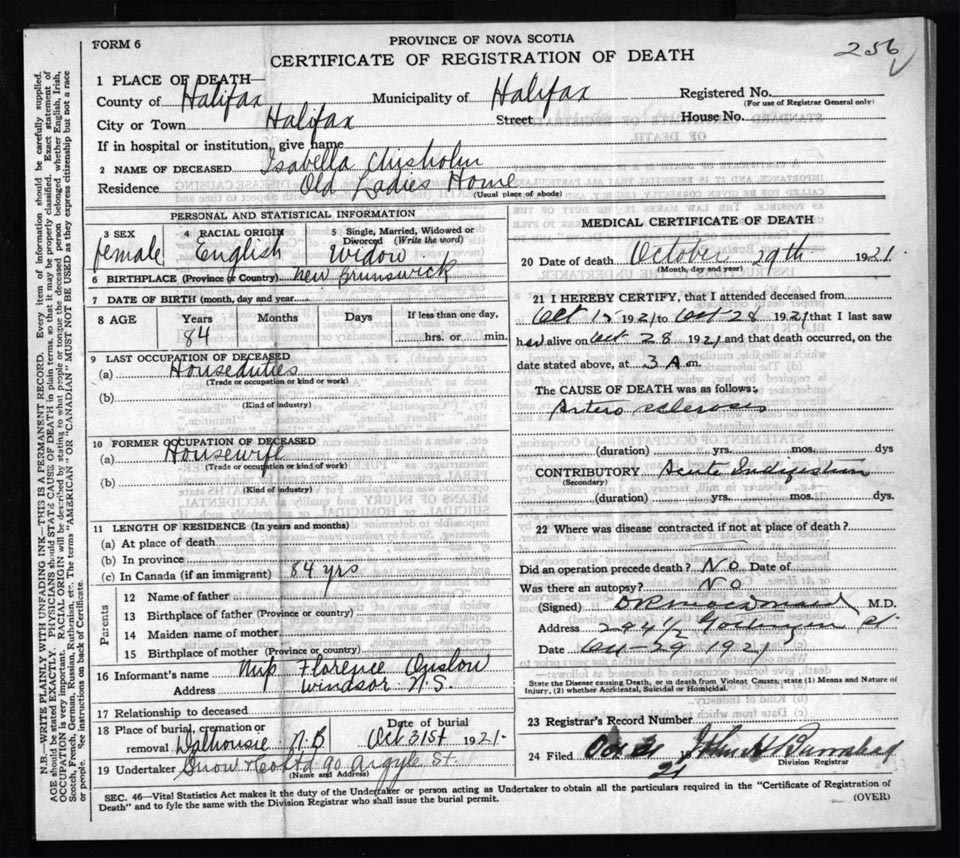 FORM 6
PROVINCE OF NOVA SCOTIA
CERTIFICATE OF REGISTRATION OF DEATH
256
1 PLACE OF DEATH—
County of Halifax Municipality of Halifax Registered No.
(For use of Registrar General only)
City or Town Halifax Street House No.
If in hospital or institution, give name
2 NAME OF DECEASED Isabella Chisholm
Residence Old Ladies Home
(Usual place of abode)
PERSONAL AND STATISTICAL INFORMATION
3 SEX 4 RACIAL ORIGIN 5 Single, Married, Widowed or Divorced (Write the word)
female English Widow
6 BIRTHPLACE (Province or Country) New Brunswick
7 DATE OF BIRTH (month, day and year)
8 AGE Years Months Days If less than one day,
84 hrs. or min.
9 LAST OCCUPATION OF DECEASED
(a) Houseduties
(Trade or occupation or kind or work)
(b)
(Kind of industry)
10 FORMER OCCUPATION OF DECEASED
(a) Housewife
(Trade or occupation or kind or work)
(b)
(Kind of industry)
11 LENGTH OF RESIDENCE (In years and months)
(a) At place of death
(b) In province
(c) In Canada (if an immigrant) 84 yrs
Parents
12 Name of father
13 Birthplace of father (Province or country)
14 Maiden name of mother
15 Birthplace of mother (Province or country)
16 Informant's name Florence Onslow
Address Windsor N.S.
17 Relationship to deceased
18 Place of burial, cremation or removal Dalhousie N.B Date of burial Oct 31st 1921.
19 Undertaker Snow & Co Ltd 90 Argyle St.
(Name and Address)
MEDICAL CERTIFICATE OF DEATH
20 Date of death October 29th 1921.
(Month, day and year)
21 I HEREBY CERTIFY, that I attended deceased from
Oct 15 1921 to Oct 28 1921 that I last saw
her alive on Oct 28 1921 and that death occurred, on the
date stated above, at 3 A m.
The CAUSE OF DEATH was as follows:
Artero sclerosis
(duration) yrs. mos. dys
CONTRIBUTORY Acute Indigestion
(Secondary)
(duration) yrs. mos. dys.
22 Where was disease contracted if not at place of death?
Did an operation precede death? NO Date of
Was there an autopsy? NO
(Signed) M.D.
Address 294 1/2 Gottingen St
Date Oct-29 1921
State the Disease causing Death, or in death from Violent Causes, state (1) Means and Nature of
Injury, (2) whether Accidental, Suicidal or Homicidal.
23 Registrar's Record Number
24 Filed Oct 31 19 21 John H
Division Registrar
SEC. 46—Vital Statistics Act makes it the duty of the Undertaker or person acting as Undertaker to obtain all the particulars required in the "Certificate of Registration of
Death" and to fyle the same with the Division Registrar who shall issue the burial permit.
(OVER)
N.B.—WRITE PLAINLY WITH UNFADING INK—THIS IS A PERMANENT RECORD. Every item of information should be carefully supplied.
AGE should be stated EXACTLY. PHYSICIANS should STATE CAUSE OF DEATH in plain terms, so that it may be properly classified. Exact statement of
OCCUPATION is very important. RACIAL ORIGIN will be described by stating to what people or tongue the deceased person belonged, whether English, Irish,
Scotch, French, German, Russian, Ruthenian, etc. The terms "AMERICAN" OR "CANADIAN" MUST NOT BE USED as they express citizenship but not a race
or people. See instructions on back of Certificate.